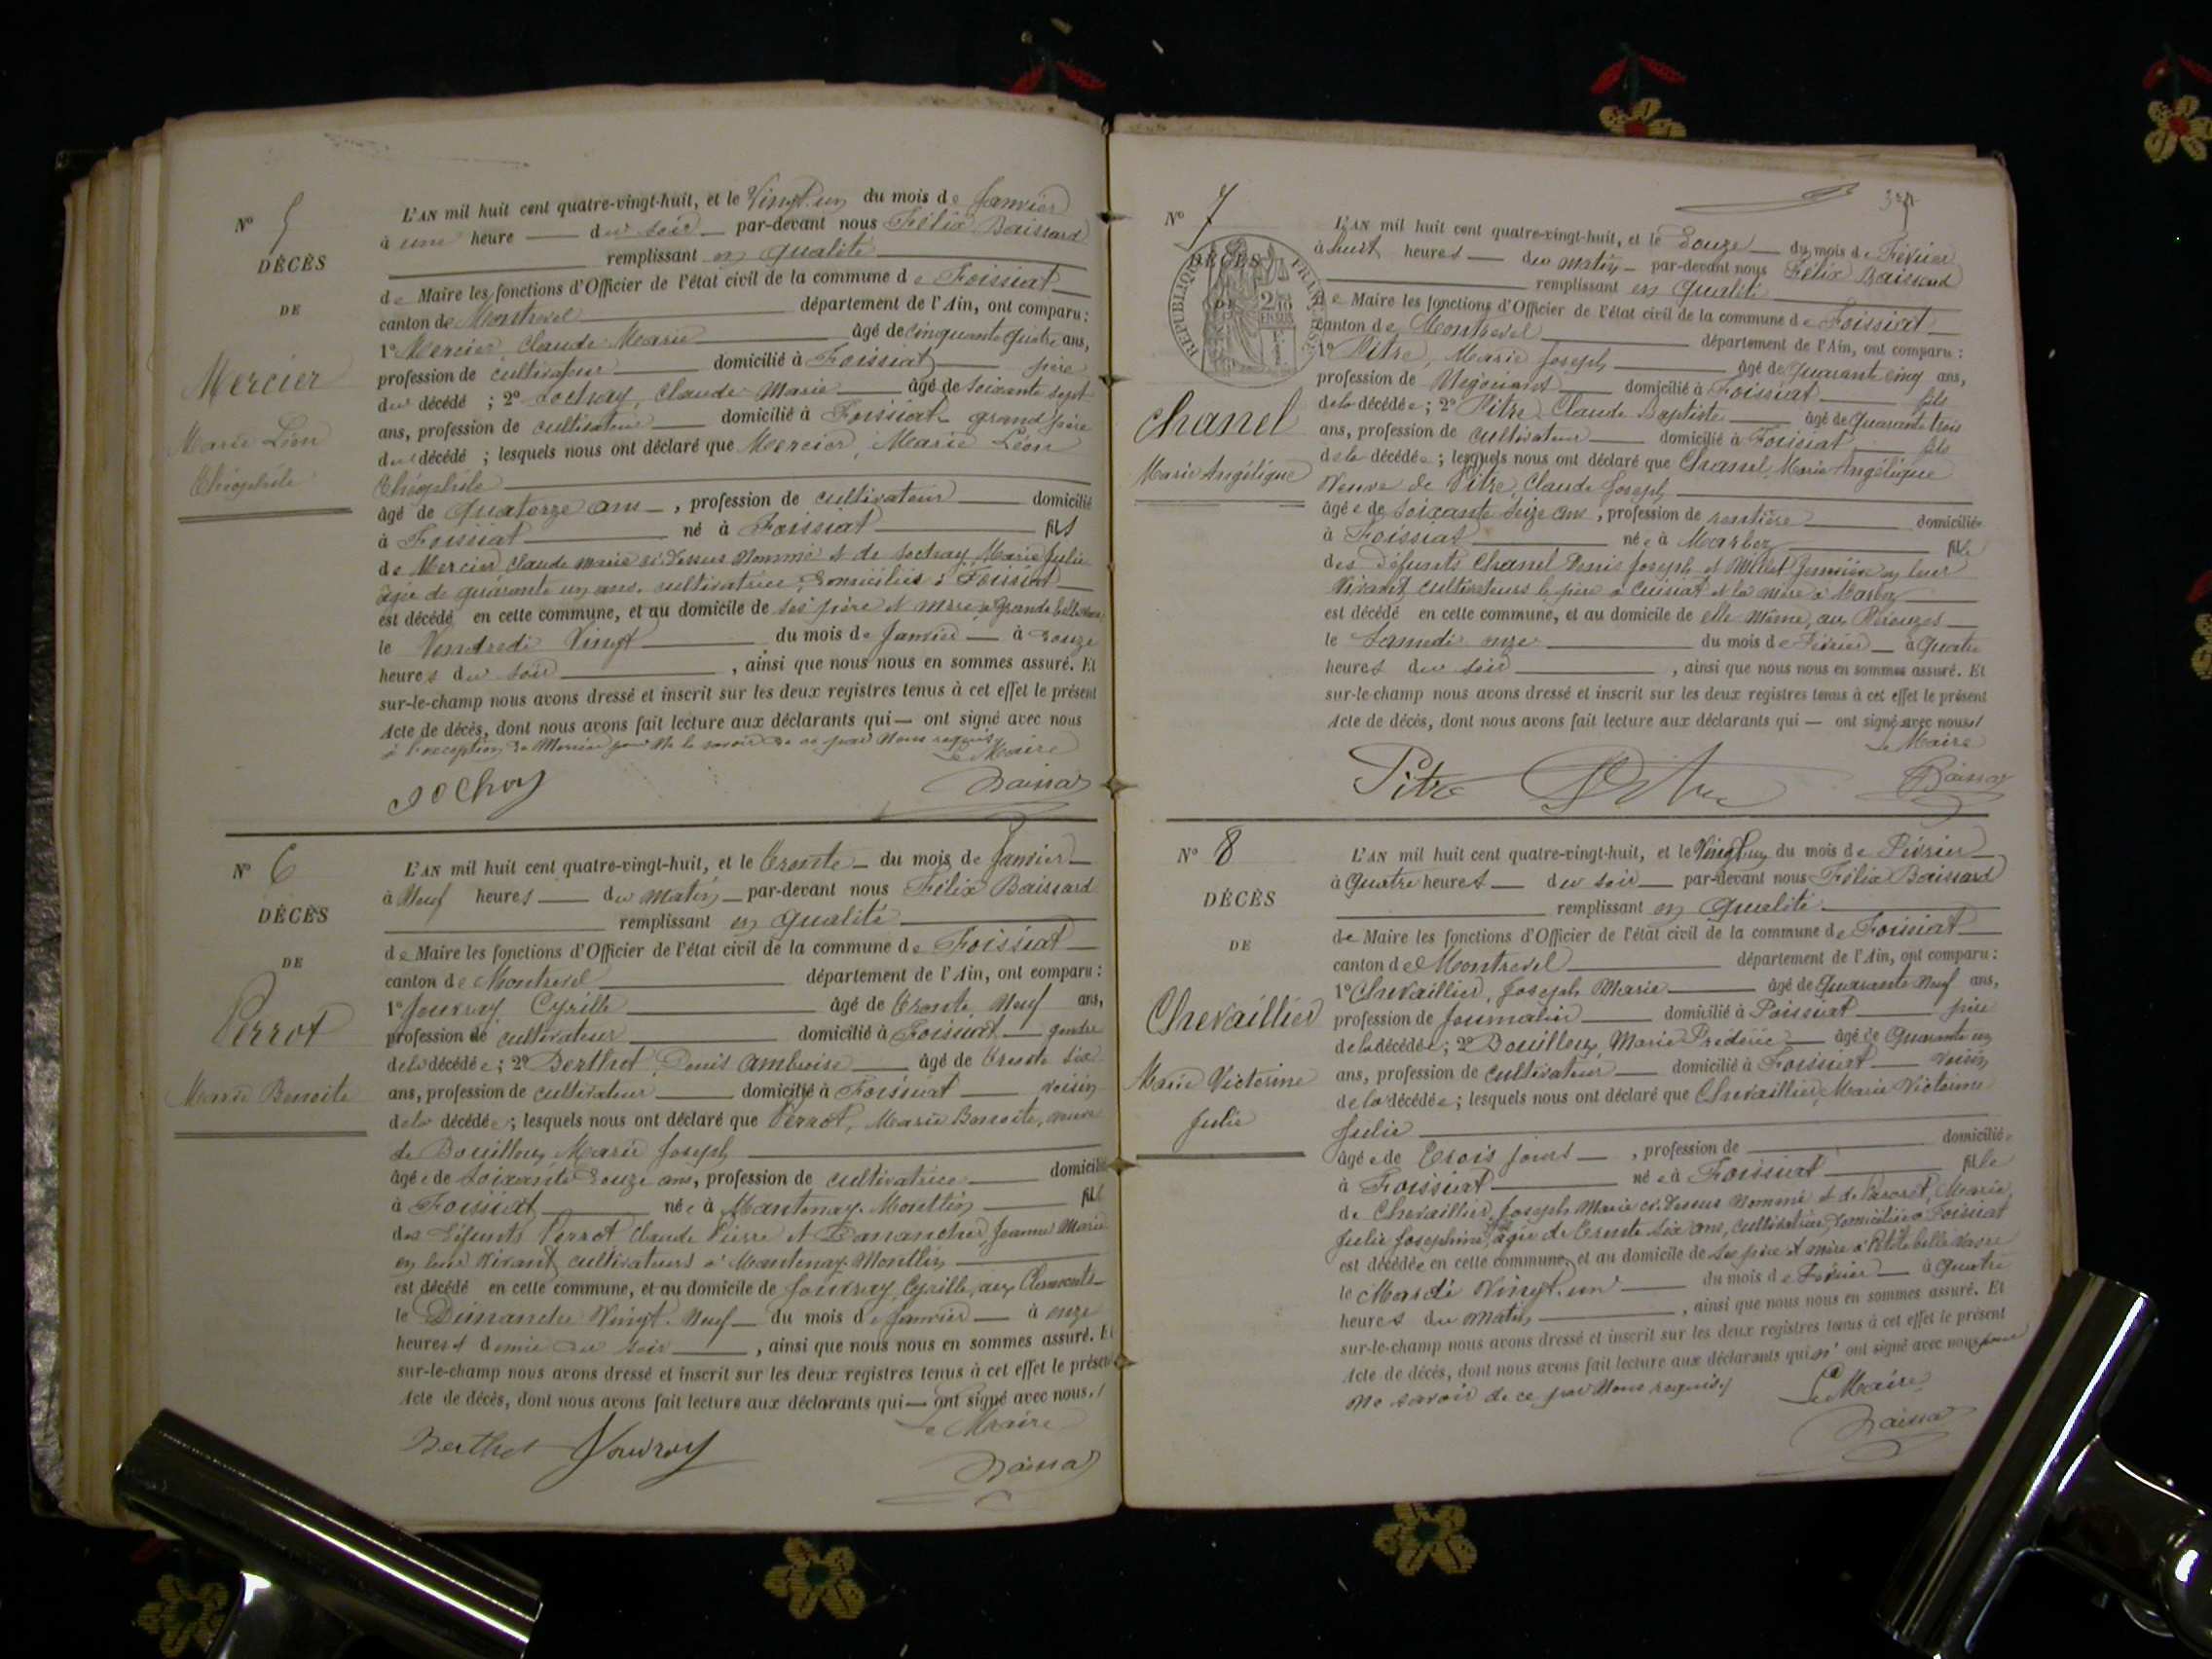 N° 5
DÉCÈS
DE
Mercier
Marie Léon
Théophile
L'AN mil huit cent quatre-vingt-huit, et le Vingt un du mois de Janvier
à une heure du soir par-devant nous Félix Baissard
remplissant en qualité
de Maire les fonctions d'Officier de l'état civil de la commune de Foissiat
canton de Montrevel département de l'Ain, ont comparu :
1° Mercier Claude Marie âgé de cinquante quatre ans,
profession de cultivateur domicilié à Foissiat père
du décédé ; 2° Sochay, Claude Marie âgé de soixante sept
ans, profession de cultivateur domicilié à Foissiat grand père
du décédé ; lesquels nous ont déclaré que Mercier, Marie Léon
Théophile
âgé de quatorze ans, profession de cultivateur domicilié
à Foissiat né à Foissiat fils
de Mercier Claude Marie ci-dessus nommé et de Sochay Marie Julie
âgée de quarante un ans, cultivatrice, domiciliés à Foissiat
est décédé en cette commune, et au domicile de ses père et mère à Grande belle
le Vendredi Vingt du mois de Janvier à douze
heures du soir, ainsi que nous nous en sommes assuré. Et
sur-le-champ nous avons dressé et inscrit sur les deux registres tenus à cet effet le présent
Acte de décès, dont nous avons fait lecture aux déclarants qui — ont signé avec nous
à l'exception de Mercier pour ne le savoir de ce par nous requis
Le Maire
Sochay
Baissard
N° 6
DÉCÈS
DE
Perrot
Marie Benoite
L'AN mil huit cent quatre-vingt-huit, et le trente du mois de Janvier
à Neuf heures du matin par-devant nous Félix Baissard
remplissant en qualité
de Maire les fonctions d'Officier de l'état civil de la commune de Foissiat
canton de Montrevel département de l'Ain, ont comparu :
1° Jouvray Cyrille âgé de trente Neuf ans,
profession de cultivateur domicilié à Foissiat gendre
de la décédée ; 2° Berthet Denis Ambroise âgé de trente six
ans, profession de cultivateur domicilié à Foissiat voisin
de la décédée ; lesquels nous ont déclaré que Perrot, Marie Benoite, veuve
de Bouilloux Marie Joseph
âgée de soixante douze ans, profession de cultivatrice domicilié
à Foissiat née à Mantenay-Montlin fille
des défunts Perrot Claude Pierre et Jeanne Marie
en leur vivant cultivateurs à Mantenay-Montlin
est décédé en cette commune, et au domicile de Jouvray, Cyrille, aux
le Dimanche Vingt-Neuf du mois de Janvier à onze
heures et demie du soir, ainsi que nous nous en sommes assuré. Et
sur-le-champ nous avons dressé et inscrit sur les deux registres tenus à cet effet le présent
Acte de décès, dont nous avons fait lecture aux déclarants qui — ont signé avec nous.
Le Maire
Berthet Jouvray
Baissard
N° 7
DÉCÈS
DE
RÉPUBLIQUE FRANÇAISE
Chanel
Marie Angélique
L'AN mil huit cent quatre-vingt-huit, et le Douze du mois de Février
à huit heures du matin par-devant nous Félix Baissard
remplissant en qualité
de Maire les fonctions d'Officier de l'état civil de la commune de Foissiat
canton de Montrevel département de l'Ain, ont comparu :
1° Pitre, Marie Joseph âgé de quarante cinq ans,
profession de Négociant domicilié à Foissiat fils
de la décédée ; 2° Pitre Claude Baptiste âgé de quarante trois
ans, profession de cultivateur domicilié à Foissiat fils
de la décédée ; lesquels nous ont déclaré que Chanel Marie Angélique
Veuve de Pitre, Claude Joseph
âgée de soixante seize ans, profession de rentière domiciliée
à Foissiat née à Marboz fille
des défunts Chanel Denis Joseph et Millet en leur
vivant cultivateurs le père à Cuisiat et la mère à Marboz
est décédé en cette commune, et au domicile de elle même, aux
le Samedi onze du mois de Février à quatre
heures du soir, ainsi que nous nous en sommes assuré. Et
sur-le-champ nous avons dressé et inscrit sur les deux registres tenus à cet effet le présent
Acte de décès, dont nous avons fait lecture aux déclarants qui — ont signé avec nous
Le Maire
Pitre Pitre
Baissard
N° 8
DÉCÈS
DE
Chevaillier
Marie Victorine
Julie
L'AN mil huit cent quatre-vingt-huit, et le Vingt un du mois de Février
à Quatre heures du soir par-devant nous Félix Baissard
remplissant en qualité
de Maire les fonctions d'Officier de l'état civil de la commune de Foissiat
canton de Montrevel département de l'Ain, ont comparu :
1° Chevaillier, Joseph Marie âgé de Quarante Neuf ans,
profession de Journalier domicilié à Foissiat père
de la décédée ; 2° Bouilloux, Marie Frédéric âgé de Quarante un
ans, profession de cultivateur domicilié à Foissiat voisin
de la décédée ; lesquels nous ont déclaré que Chevaillier, Marie Victorine
Julie
âgée de trois jours, profession de domiciliée
à Foissiat née à Foissiat fille
de Chevaillier, Joseph Marie ci-dessus nommé et de Marie
Julie Josephine, âgée de trente six ans, cultivatrice, domiciliée à Foissiat
est décédée en cette commune, et au domicile de ses père et mère à Petite belle
le Mardi Vingt-un du mois de Février à quatre
heures du matin, ainsi que nous nous en sommes assuré. Et
sur-le-champ nous avons dressé et inscrit sur les deux registres tenus à cet effet le présent
Acte de décès, dont nous avons fait lecture aux déclarants qui n'ont signé avec nous pour
ne savoir de ce par nous requis
Le Maire
Baissard